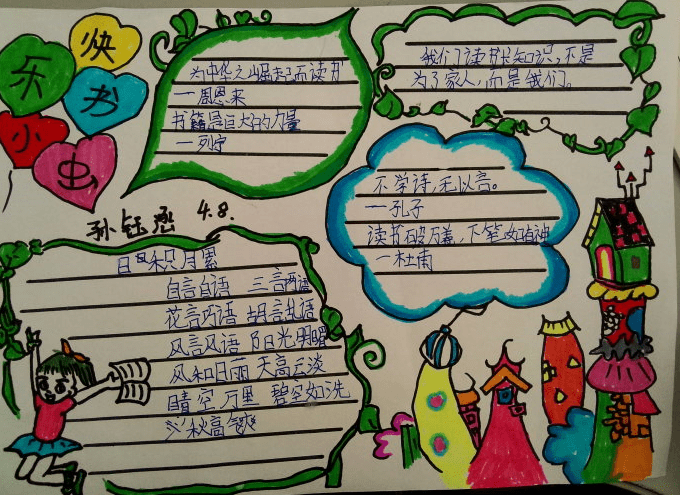 快乐书小虫
为中华之崛起而读书
—周恩来
书籍是巨大的力量
—列宁
我们读书长知识，不是
为了家人，而是我们。
不学诗，无以言。
—孔子
读书破万卷，下笔如有神
—杜甫
孙钰 4.8.
日积月累
自言自语 三言两语
花言巧语 胡言乱语
风言风语 阳光明媚
风和日丽 天高云淡
晴空万里 碧空如洗
秋高气爽